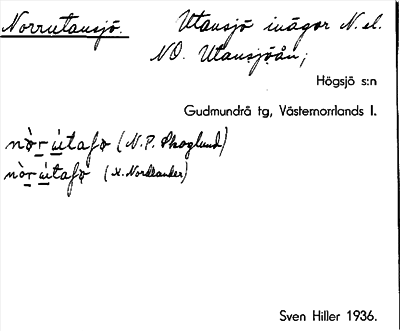 Norrutansjö. Utansjö inägor N. el.
NO. Utansjöån;
Högsjö s:n
Gudmundrå tg, Västernorrlands l.
nòrútaʃo (N. P. Skoglund)
nòrútaʃo (X. Nordlander)
Sven Hiller 1936.